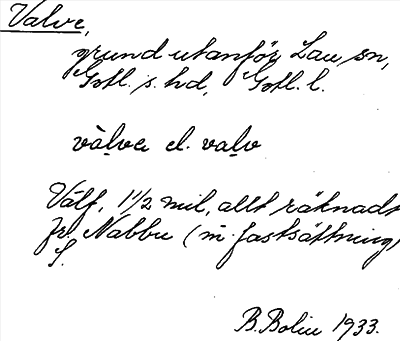 Valve,
grund utanför Lau sn,
Gotl. s. hd, Gotl. l.
valvə el. valv
Välf, 1 1/2 mil, allt räknadt
fr. Nabbu (m. fastsättning)
S.
B. Bolin 1933.